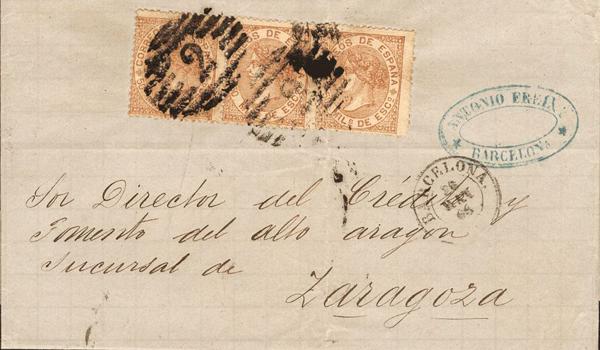 CORREOS DE ESPAÑA
OS DE ESPAÑA
MILS DE ESCO
2
ANTONIO
BARCELONA
BARCELONA.
68
Sor Director del Crédito y
Fomento del alto aragon
Sucursal de
Zaragoza